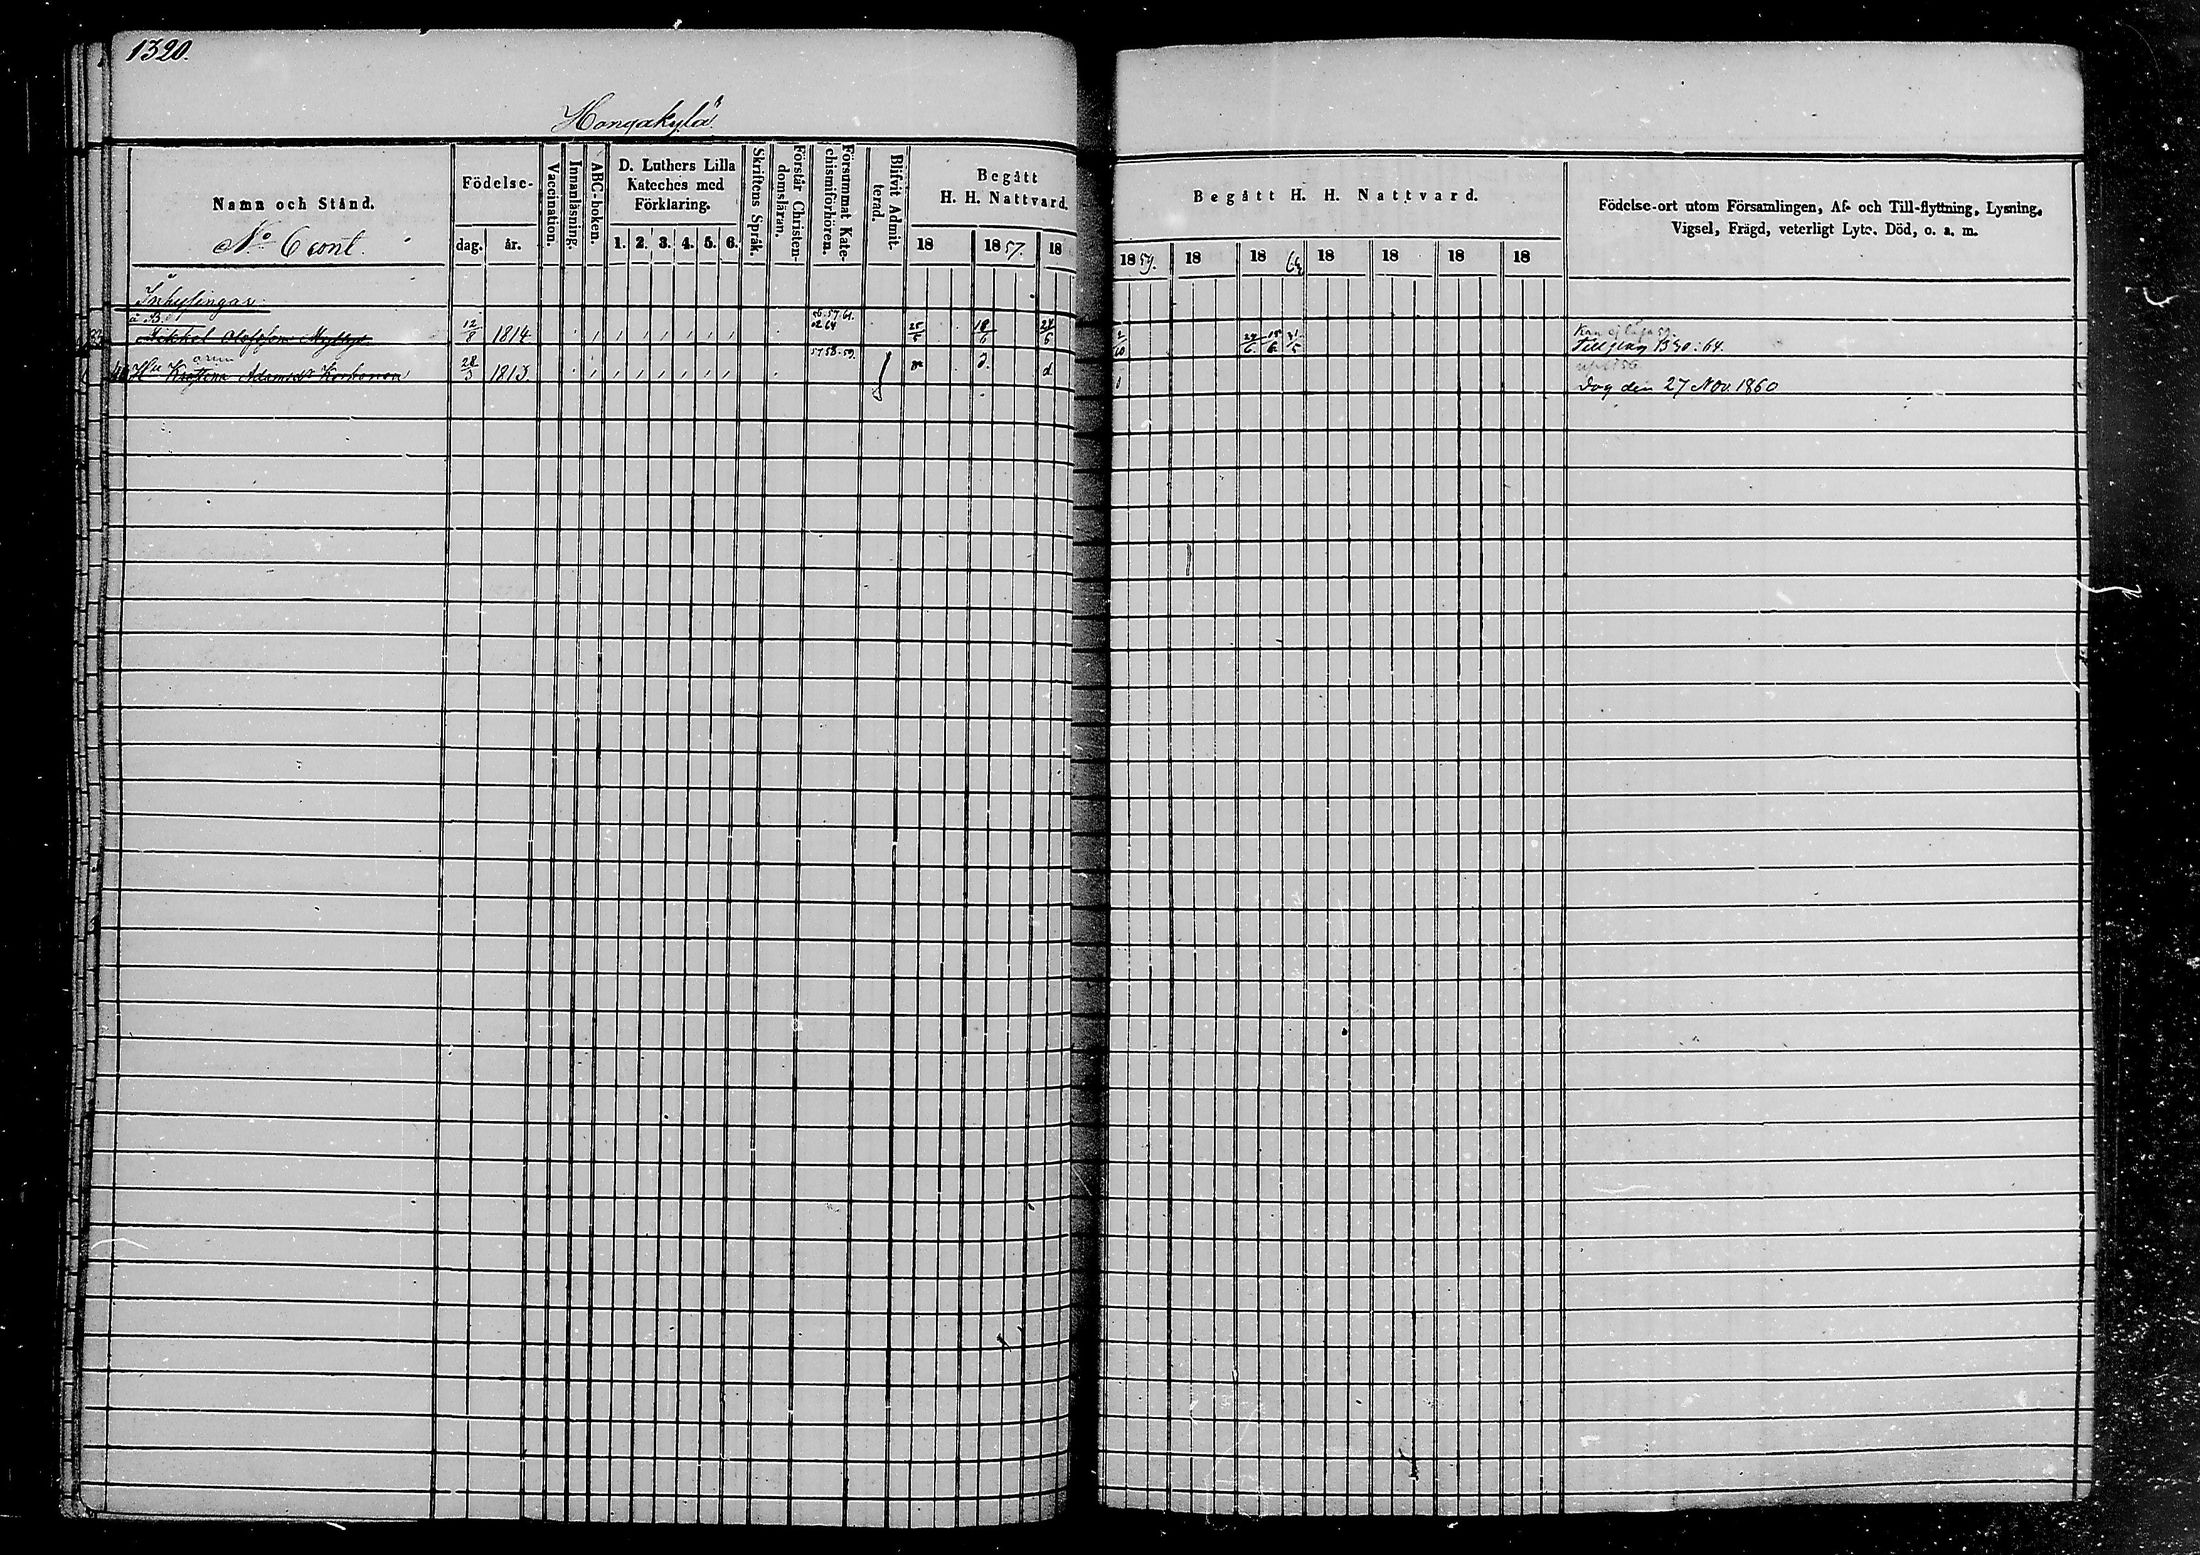 1320.
Hongakylä.
Namn och Stånd.
No 6 cont.
Födelse-
dag.
år.
Vaccination.
Innanläsning.
ABC-boken.
D. Luthers Lilla
Kateches med
Förklaring.
1. 2. 3. 4. 5. 6.
Skriftens Språk.
Förstår Christen-
domsläran.
Försummat Kate-
chismiförhören.
Blifvit Admit-
terad.
Begått
H. H. Nattvard.
18 1857. 18
Begått H. H. Nattvard.
1859. 18 18 64 18 18 18 18
Födelse-ort utom Församlingen, Af- och Till-flyttning, Lysning,
Vigsel, Frägd, veterligt Lyte. Död, o. a. m.
Inhysingar.
å B.
Mikkel Olofsson 12/8 1814 57. 61. 62 64 25/5 18/6 2/10 24/6 15/6 31/5
Till pag 1330: 64.
Hu Adamsdr Korhonen 28/3 1813. 57 58. 59. d.
Dog den 27 Nov. 1860